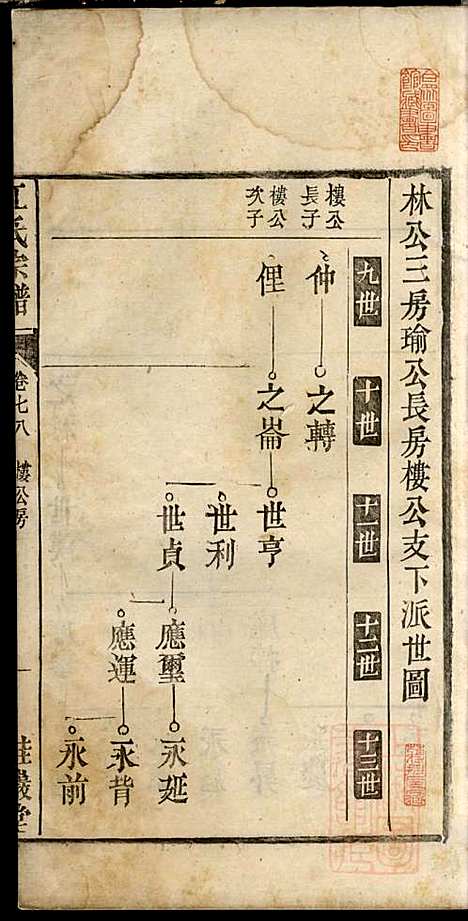 林公三房瑜公長房樓公支下派世圖
九世
十世
十一世
十二世
十三世
樓公長子
仲
之轉
樓公次子
俚
之崙
世亨
世利
世貞
應璽
永延
應運
永背
永前
江氏宗譜
卷七八
樓公房
一